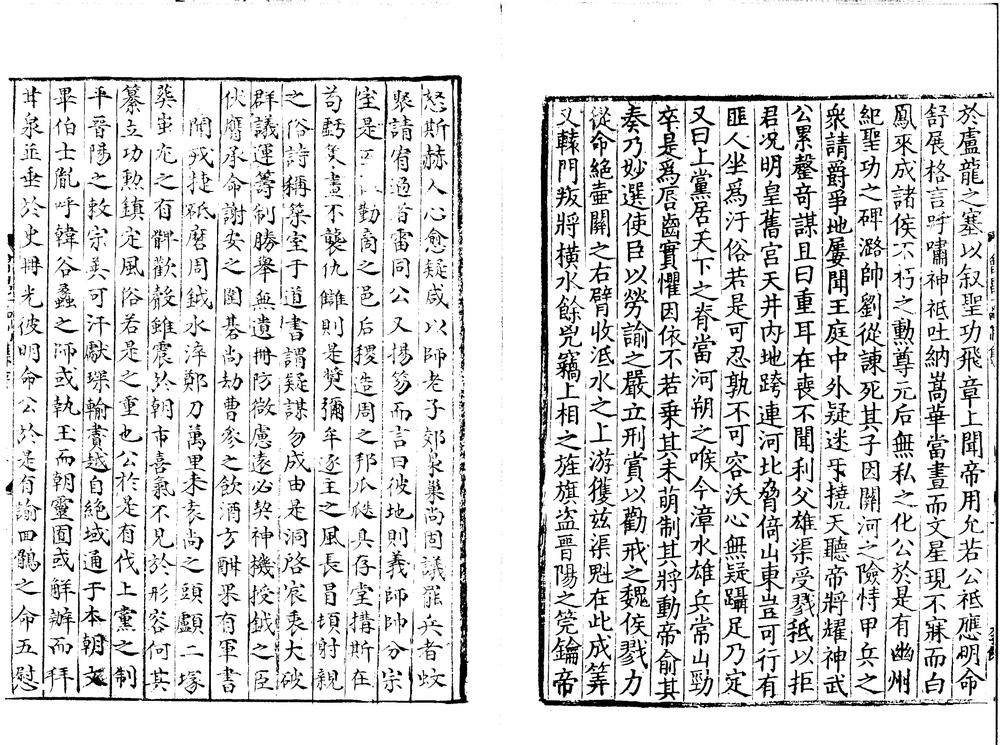 於盧龍之塞以叙聖功飛章上聞帝用允若公祇應明命
舒展格言呼嘯神祇吐納嵩華當晝而文星現不寐而白
鳳來成諸侯不朽之勲尊元后無私之化公於是有幽州
紀聖功之碑潞帥劉從諫死其子因關河之險恃甲兵之
衆請爵爭地屢聞王庭中外疑迷撓天聽帝將耀神武
公累罄奇謀且曰重耳在喪不聞利父雄渠受戮秪以拒
君况明皇舊宫天井内地跨連河北脅倚山東豈可行有
匪人坐爲汙俗若是可忍孰不可容沃心無疑躡足乃定
又曰上黨居天下之脊當河朔之喉今漳水雄兵常山勁
卒是爲脣齒實懼因依不若乗其未萌制其將動帝俞其
奏乃妙選使臣以勞諭之嚴立刑賞以勸戒之魏侯戮力
從命絶壷關之右臂收泜水之上游獲兹渠魁在此成筭
又轅門叛將横水餘兇竊上相之旌旗盗晋陽之筦鑰帝
怒斯赫人心愈疑咸以師老于郊梟巢尚固議罷兵者蚊
聚請宥過者雷同公又揚笏而言曰彼地則義師師分宗
室是勤商之邑后稷造周之邦瓜瓞具存堂搆斯在
苟虧筭畫不襲仇讎則是奬彌牟逐主之風長冒頓射親
之俗詩稱築室于道書謂疑謀勿成由是洞啓宸衷大破
群議運籌制勝舉無遺冊防微慮遠必契神機授鉞之臣
伏膺承命謝安之圍碁尚劫曹參之飲酒方酣果有軍書
聞我捷祗磨周鉞水淬鄭刀萬里來袁尚之頭顱二塚
葬蚩尤之有髀歡聲雖震於朝市喜氣不見於形容何其
纂立功勲鎮定風俗若是之重也公於是有伐上黨之制
平晉陽之敕宗英可汗獻琛輸賮越自絶域通于本朝文
畢伯士胤呼韓谷蠡之師或執玉而朝靈囿或解辮而拜
甘泉並垂於史冊光彼明命公於是有諭回鶻之命五慰